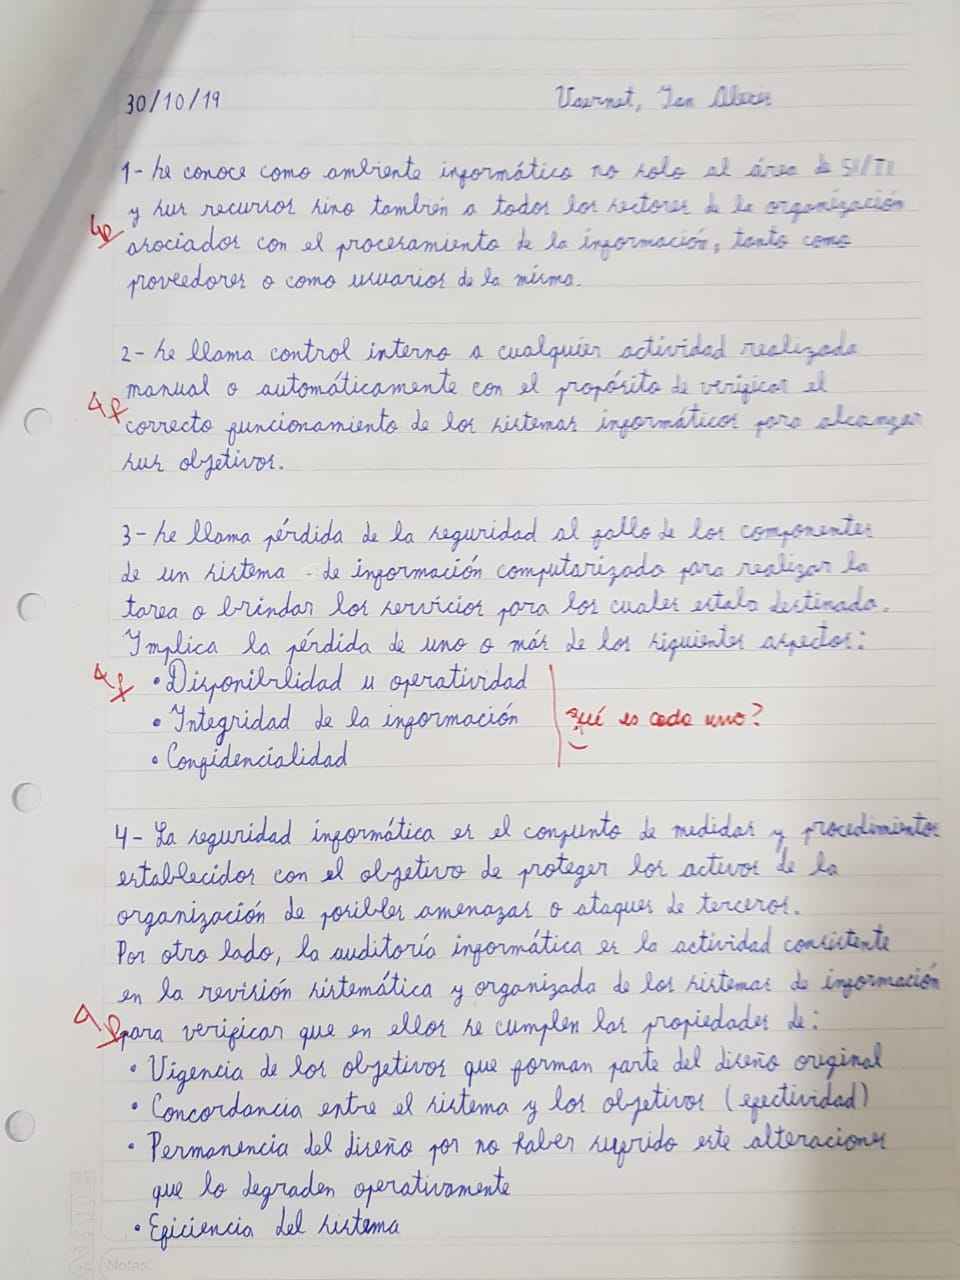 30/10/19
Usernet, Ian Alexis
1- Se conoce como ambiente informático no solo al área de SI/TI
y sus recursos sino también a todos los sectores de la organización
asociados con el procesamiento de la información, tanto como
proveedores o como usuarios de la misma.
2- Se llama control interno a cualquier actividad realizada
manual o automáticamente con el propósito de verificar el
correcto funcionamiento de los sistemas informáticos para alcanzar
sus objetivos.
3- Se llama pérdida de la seguridad al fallo de los componentes
de un sistema de información computarizado para realizar la
tarea o brindar los servicios para los cuales estaba destinado.
Implica la pérdida de uno o más de los siguientes aspectos:
• Disponibilidad u operatividad
• Integridad de la información
qué es cada uno?
• Confidencialidad
4- La seguridad informática es el conjunto de medidas y procedimientos
establecidos con el objetivo de proteger los activos de la
organización de posibles amenazas o ataques de terceros.
Por otro lado, la auditoría informática es la actividad consistente
en la revisión sistemática y organizada de los sistemas de información
para verificar que en ellos se cumplen las propiedades de:
• Vigencia de los objetivos que forman parte del diseño original
• Concordancia entre el sistema y los objetivos (efectividad)
• Permanencia del diseño por no haber sufrido este alteraciones
que lo degraden operativamente
• Eficiencia del sistema
Notas: